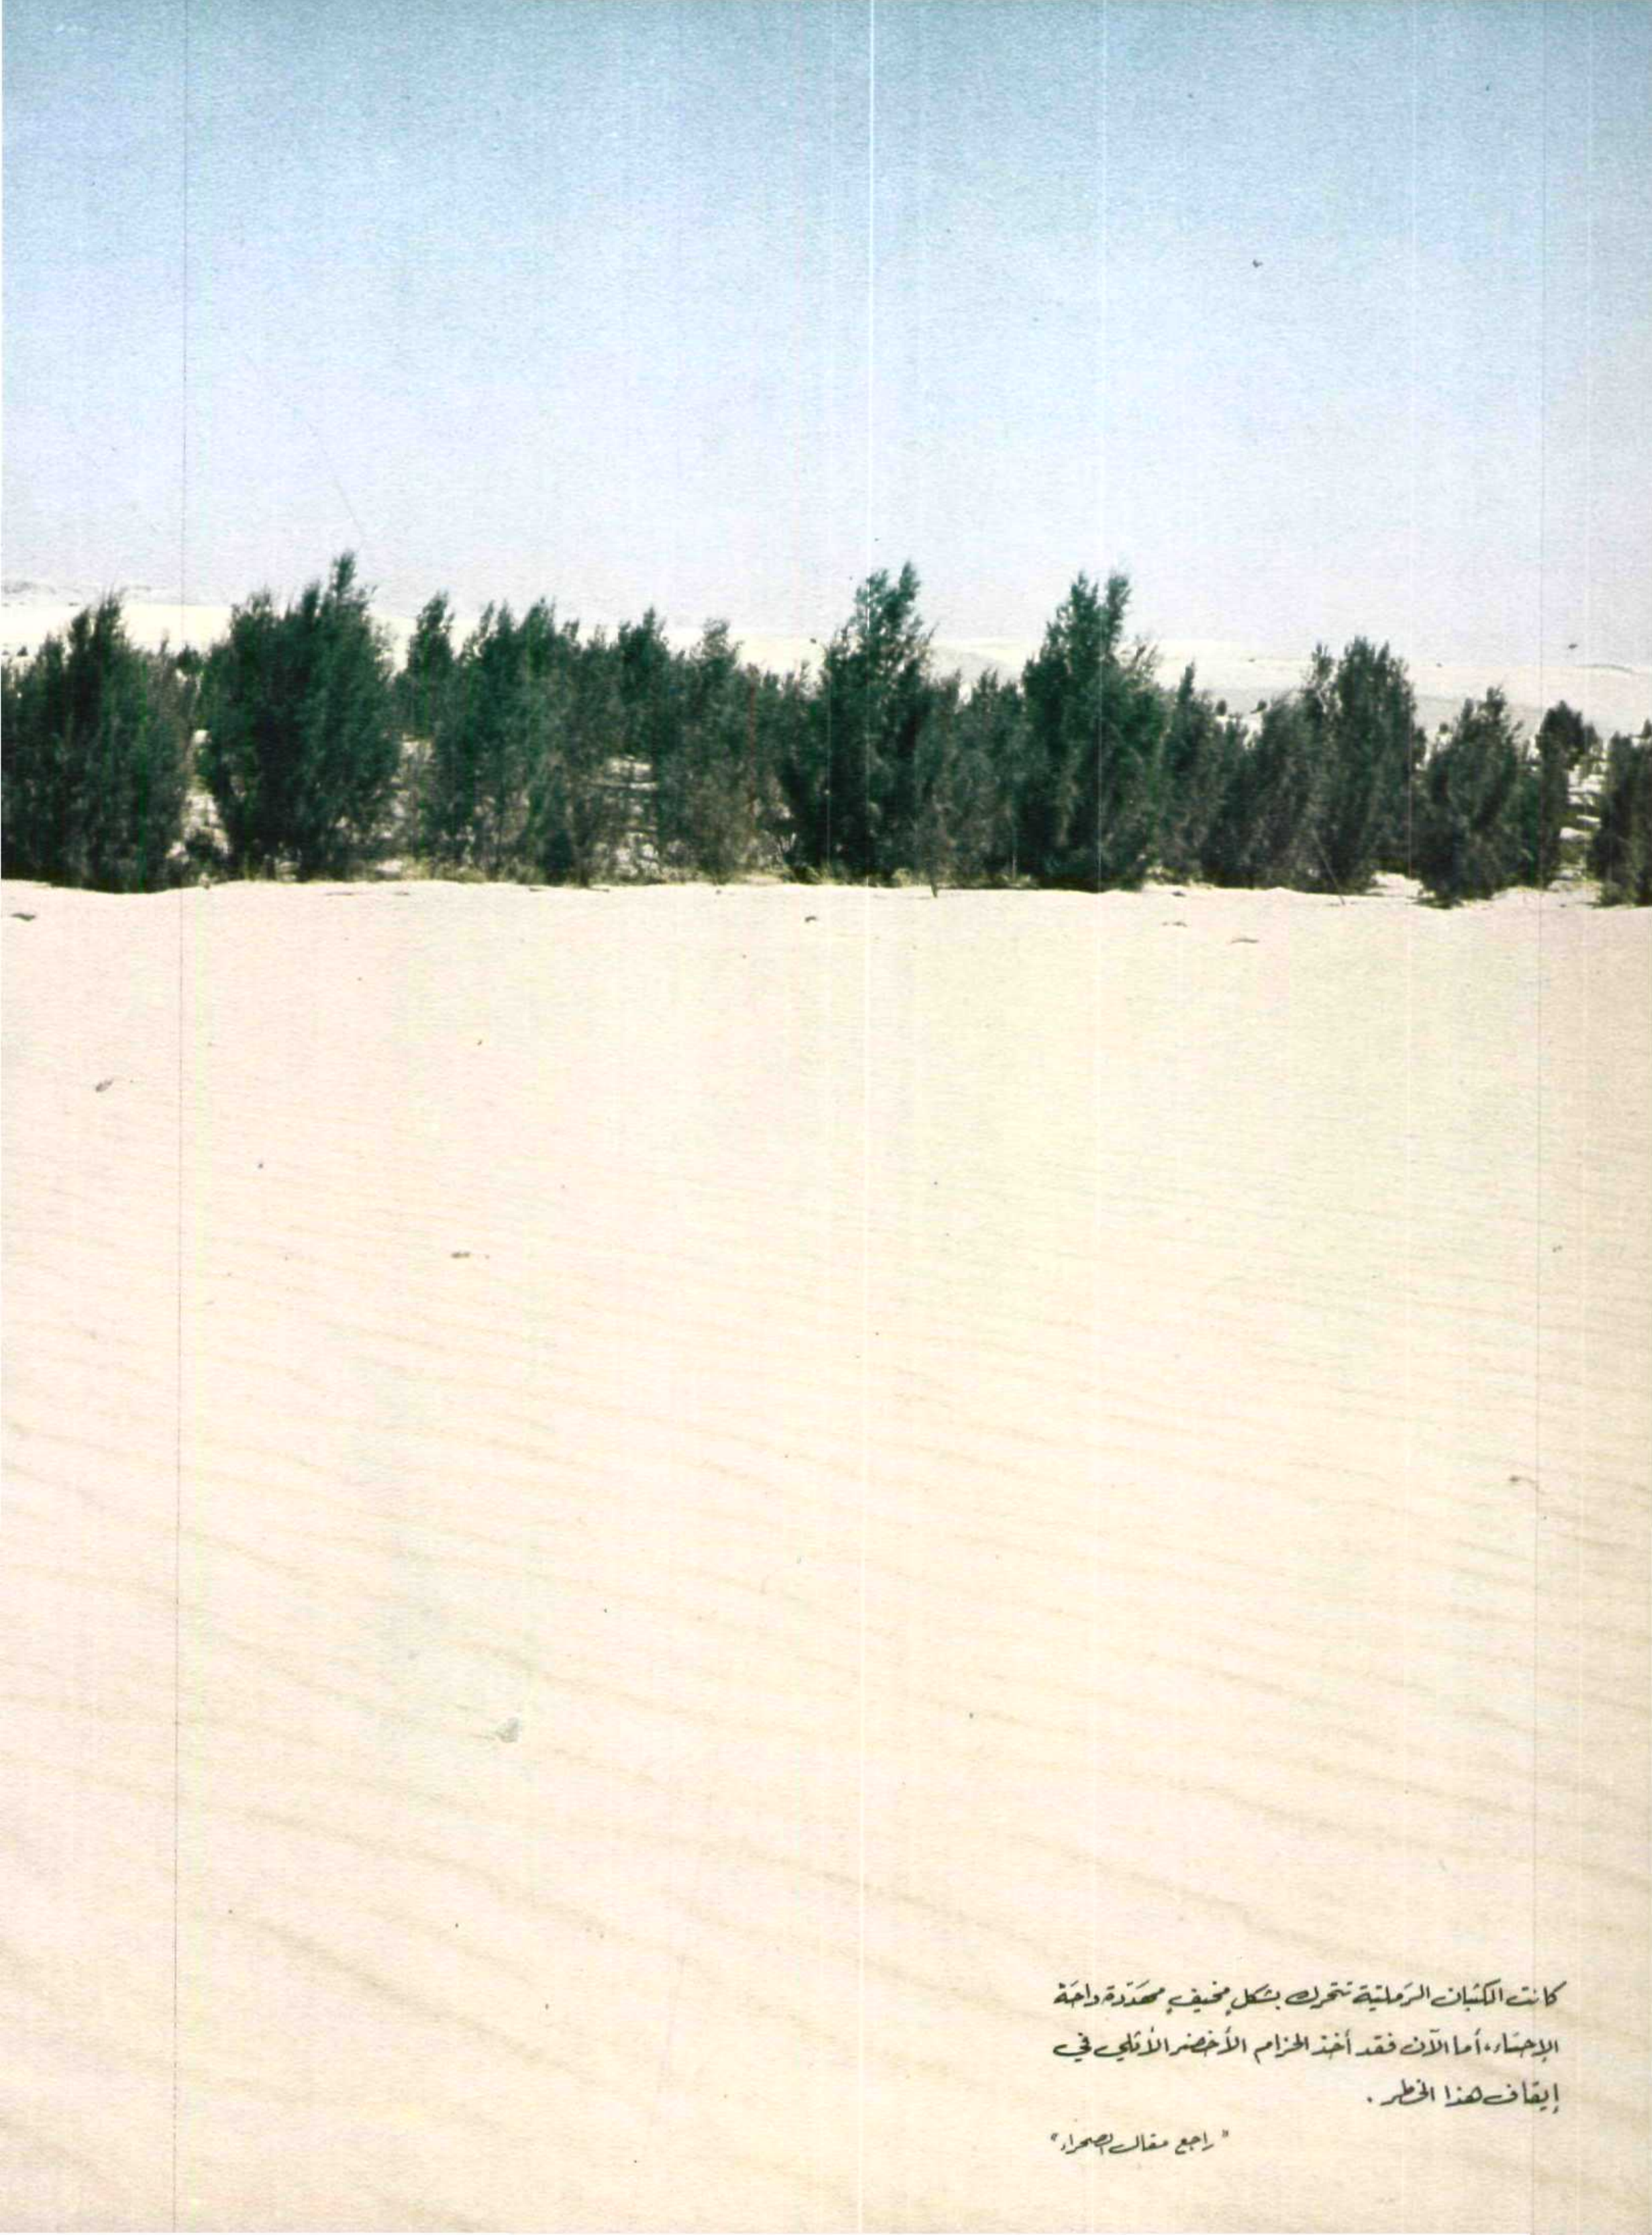 كانت الكثبان الرَمليّة تتحرك بشكلٍ مخيفٍ مهَدّدة واحَة
الإحسَاء، أما الآن فقد أخذ الحزام الأخضر الأثلي في
إيقاف هذا الخطر .
"راجع مقال الصحراء"